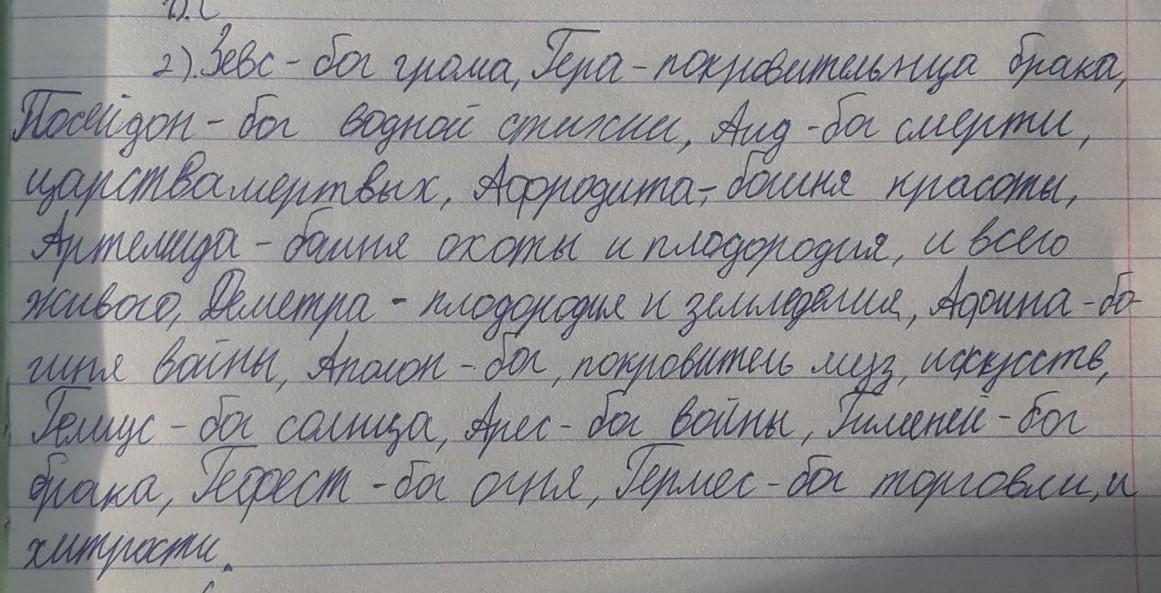 2). Зевс - бог грома, Гера - покровительница брака,
Посейдон - бог водной стихии, Аид - бог смерти,
царства мертвых, Афродита, - богиня красоты,
Артемида - богиня охоты и плодородия, и всего
живого, Деметра - плодородия и земледелия, Афина - бо-
гиня войны, Аполон - бог, покровитель муз, искусств,
Гелиус - бог солнца, Арес - бог войны, Гименей - бог
брака, Гефест - бог огня, Гермес - бог торговли, и
хитрости.